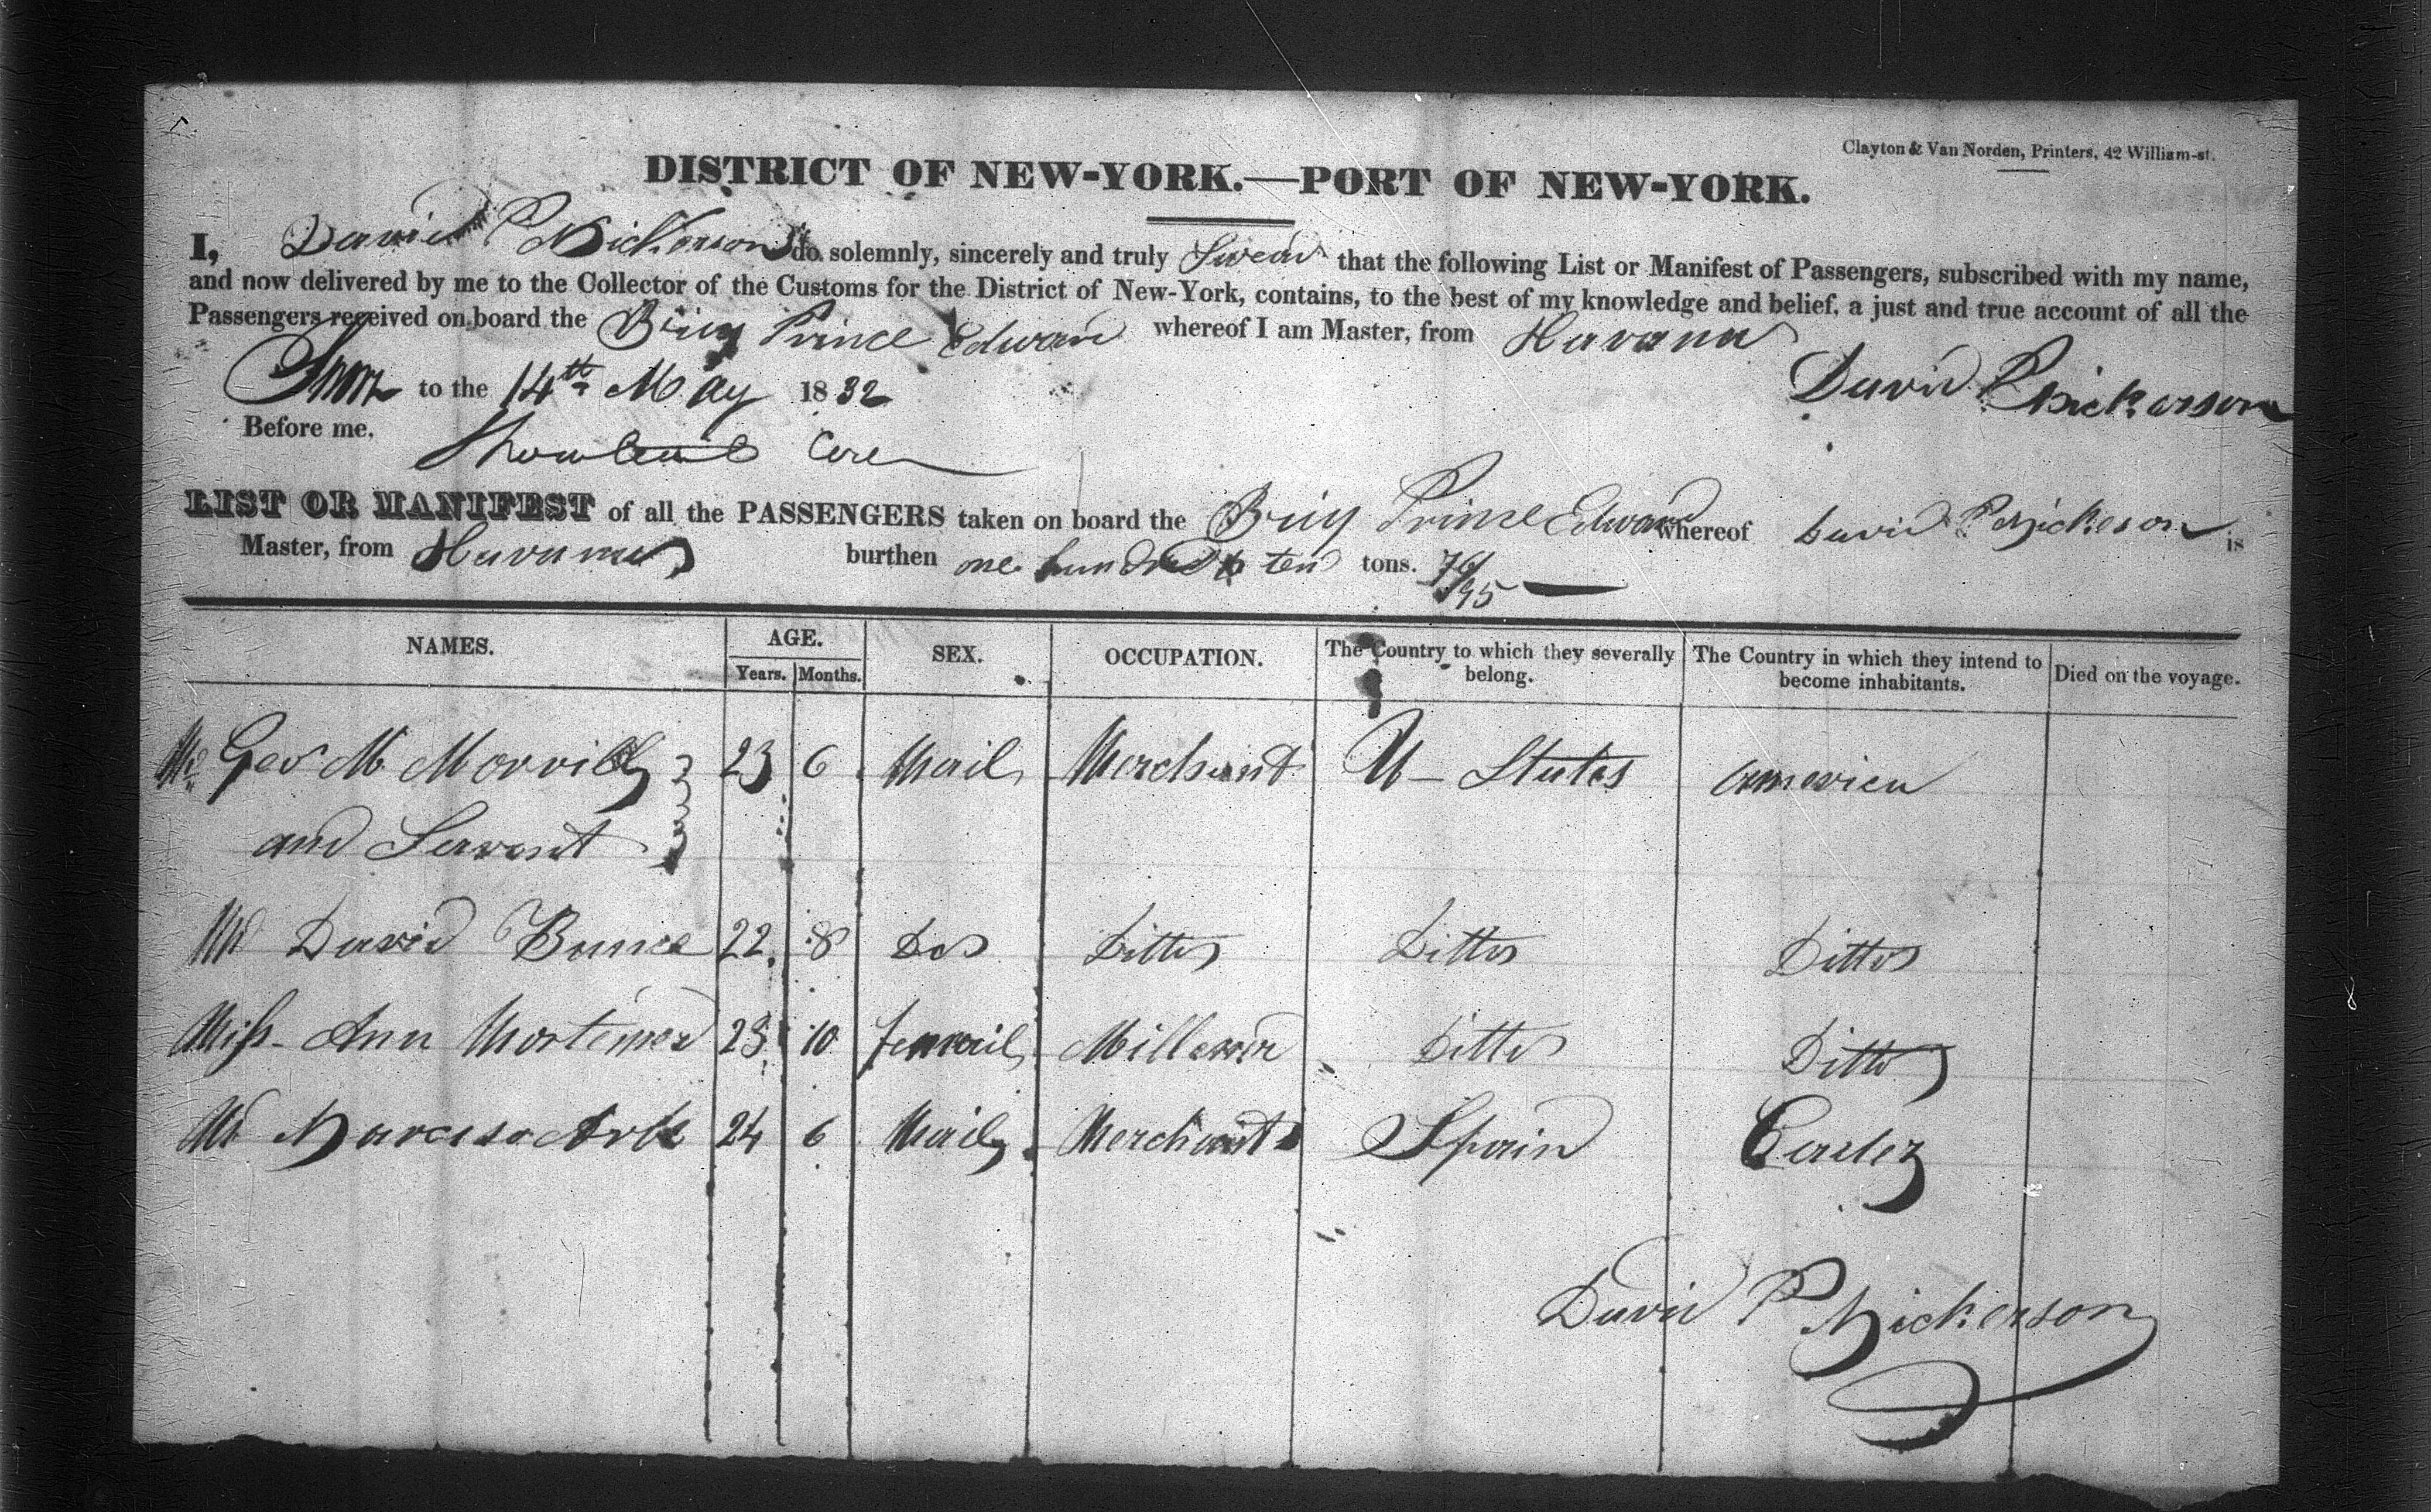 Clayton & Van Norden, Printers, 42 William-st.
DISTRICT OF NEW-YORK.—PORT OF NEW-YORK.
I, David P Nickerson do solemnly, sincerely and truly Swear that the following List or Manifest of Passengers, subscribed with my name,
and now delivered by me to the Collector of the Customs for the District of New-York, contains, to the best of my knowledge and belief, a just and true account of all the
Passengers received on board the Brig Prince Edward whereof I am Master, from Havana
Sworn to the 14th May 1832 David P Nickerson
Before me,
LIST OR MANIFEST of all the PASSENGERS taken on board the Brig Prince Edward whereof David P Nickerson is
Master, from Havana burthen one hundred & ten tons. 76/95
NAMES. AGE. SEX. OCCUPATION. The Country to which they severally belong. The Country in which they intend to become inhabitants. Died on the voyage.
Years. Months.
Mr Geo M 23 6 Mail Merchant U States America
and Servant
Mr David Bunce 22 8 Do Ditto Ditto Ditto
Miss Ann Mortemer 23 10 femail Ditto Ditto
Mr Narciso 24 6 Mail Merchant Spain Cadez
David P Nickerson